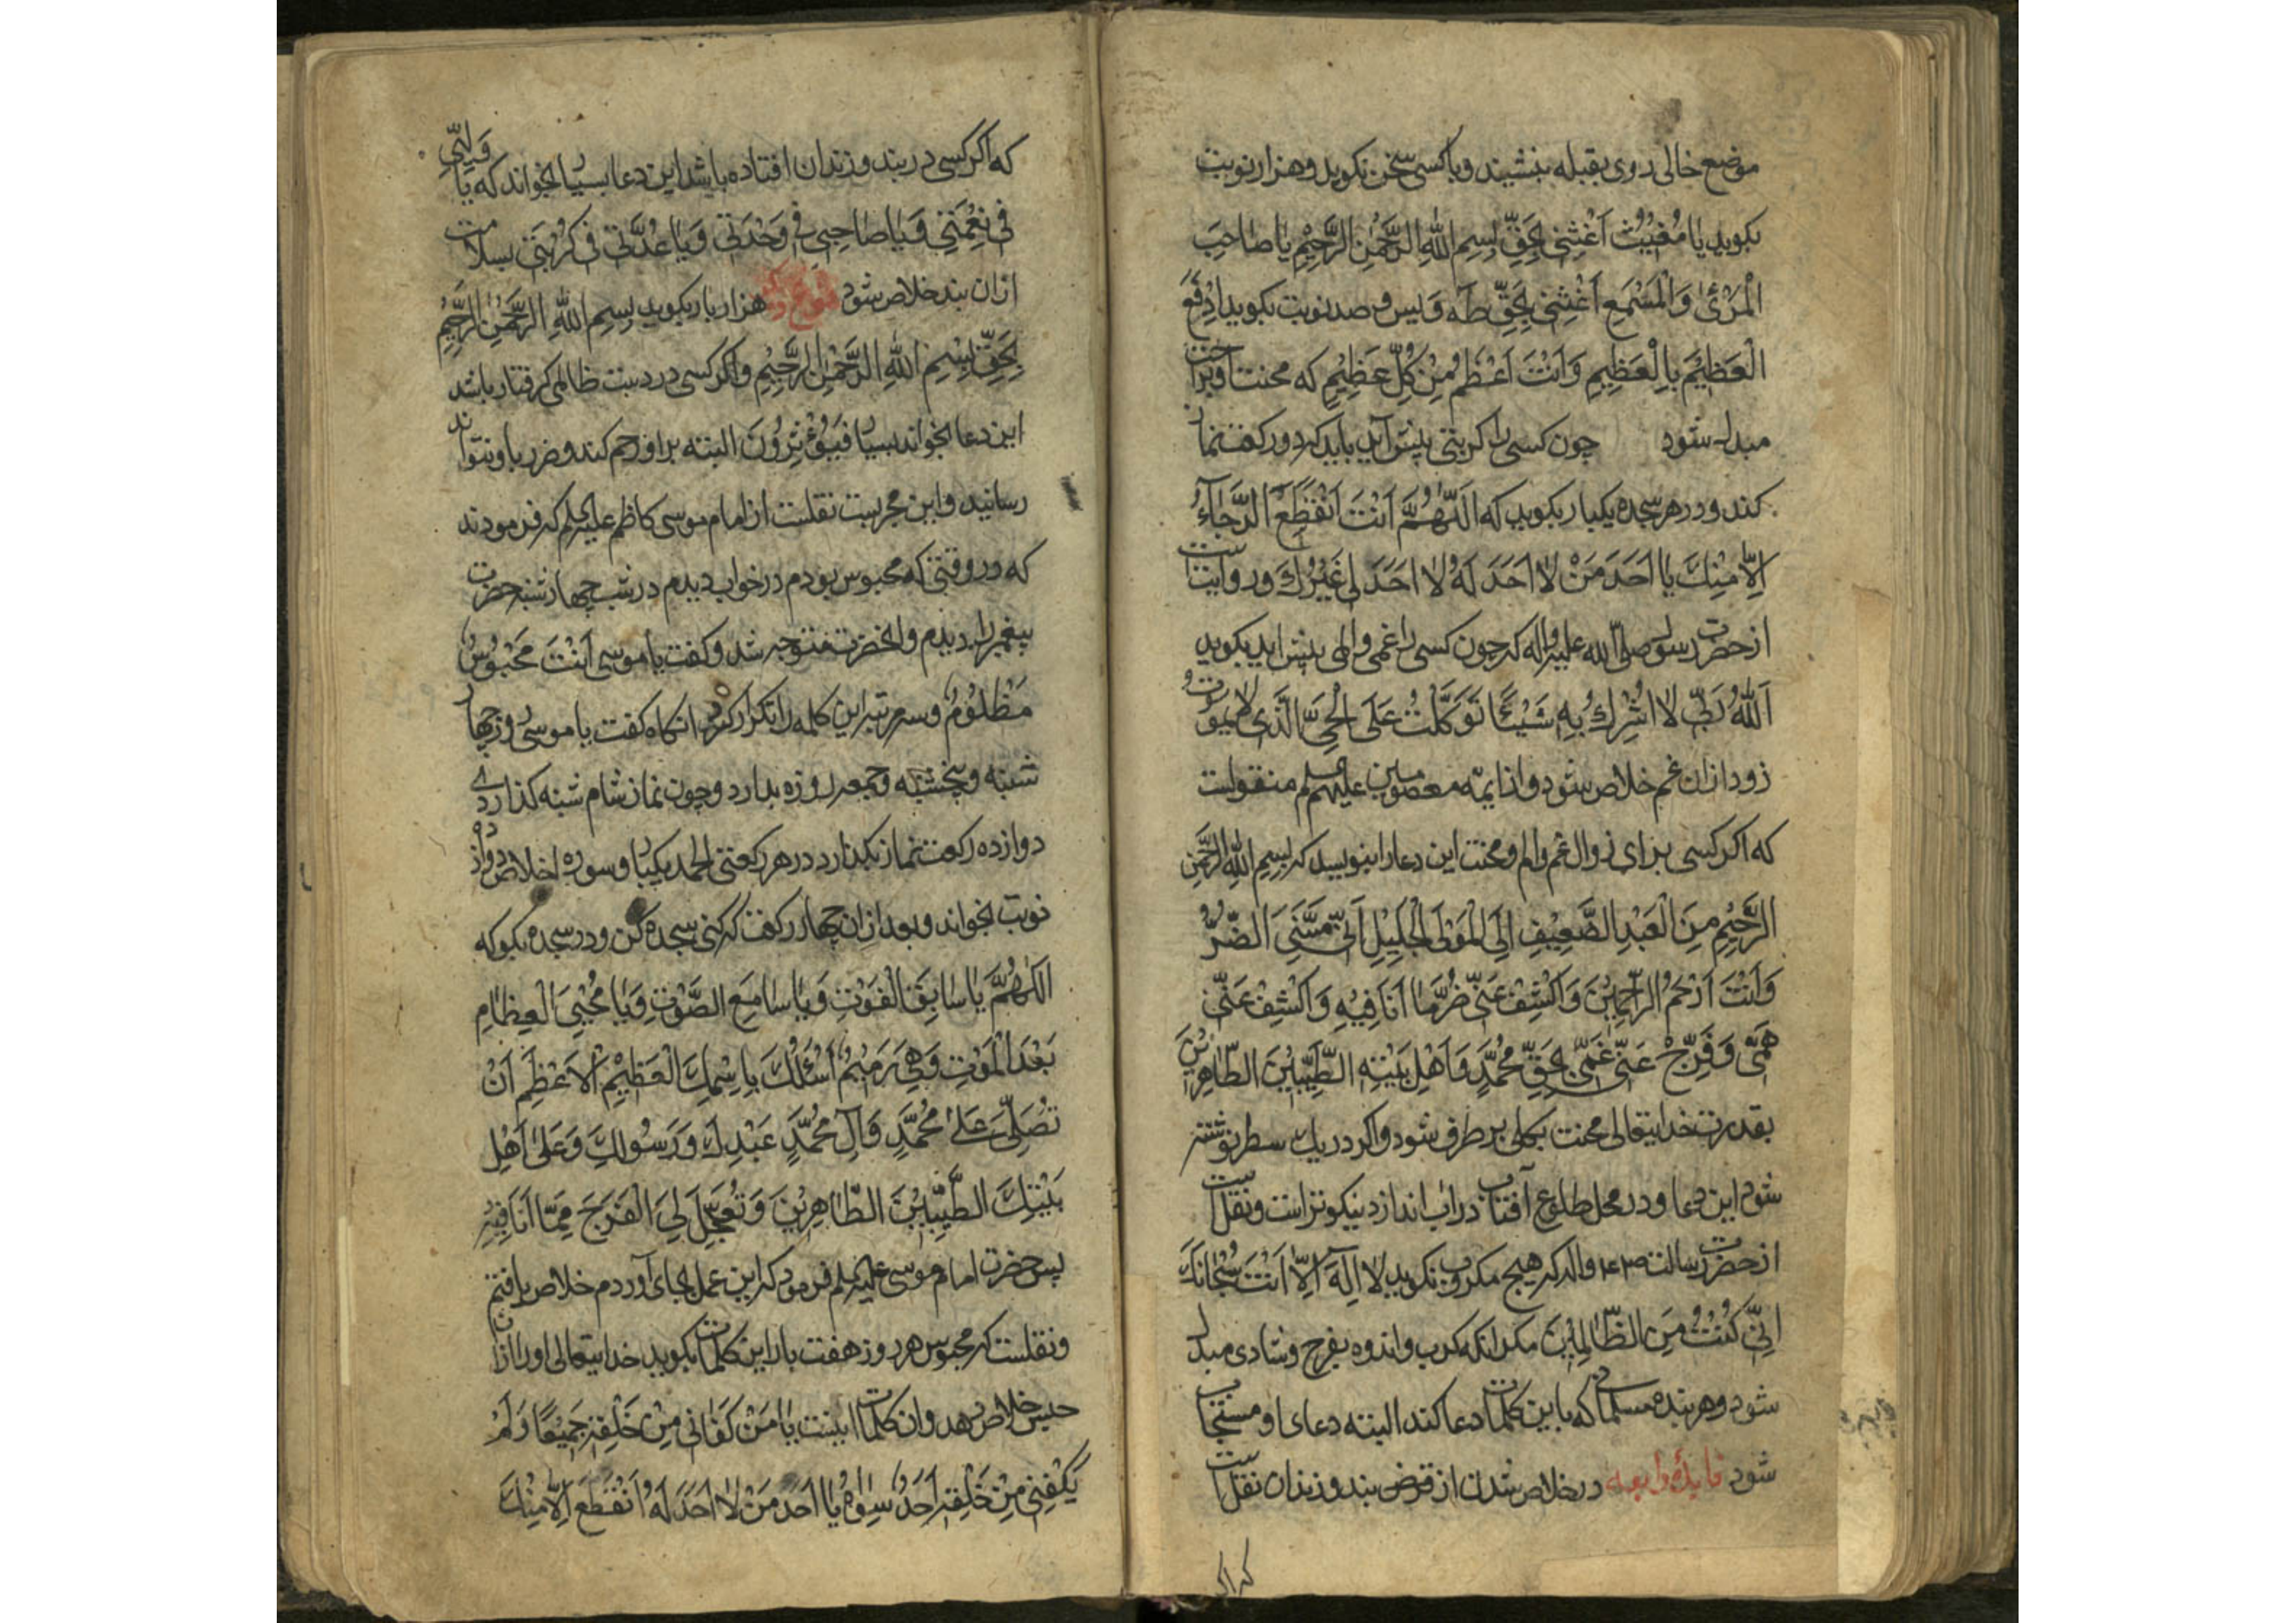 موضع خالی روی بقبله بنشیند و با کسی سخن نکوید و هزار نوبت
بکوید یَا مُغِیْثُ اَغِثْنِی بِحَقِّ بِسْمِ اللّٰهِ الرَّحْمٰنِ الرَّحِیْمِ یَا صَاحِبَ
الْمَرْئٰ وَالْمَسْمَعِ اَغِثْنِی بِحَقِّ طٰه وَ یٰس و صد نوبت بکوید اِدْفَعِ
الْعَظِیْمَ بِالْعَظِیْمِ وَاَنْتَ اَعْظَمُ مِنْ کُلِّ عَظِیْمٍ که محنت او براحت
مبدل شود چون کسی را کربتی پیش آید باید که دو رکعت نماز
کند و در هر سجده یکبار بکوید که اَللّٰهُمَّ اَنْتَ اَنْقَطَعَ الرَّجَآءُ
اِلَّا مِنْكَ یَا اَحَدَ مَنْ لَا اَحَدَ لَهُ لَا اَحَدَ لِی غَیْرُكَ و روایتست
از حضرت رسول صلی الله علیه و اله که چون کسی را غمی و المی پیش اید بکوید
اَللّٰهُ رَبِّی لَا اُشْرِكُ بِهِ شَیْئًا تَوَکَّلْتُ عَلَی الْحَیِّ الَّذِی لَا یَمُوْتُ
زود ازان غم خلاص شود و از ایمّه معصومین علیهم السلم منقولست
که اکر کسی برای زوال غم و الم و محنت این دعا را بنویسد که بِسْمِ اللّٰهِ الرَّحْمٰنِ
الرَّحِیْمِ مِنَ الْعَبْدِ الضَّعِیْفِ اِلَی الْمَوْلَی الْجَلِیْلِ اَنِّی مَسَّنِیَ الضُّرُّ
وَاَنْتَ اَرْحَمُ الرَّاحِمِیْنَ وَاکْشِفْ عَنِّی ضُرَّ مَا اَنَا فِیْهِ وَاکْشِفْ عَنِّی
هَمِّی وَفَرِّجْ عَنِّی غَمِّی بِحَقِّ مُحَمَّدٍ وَاَهْلِ بَیْتِهِ الطَّیِّبِیْنَ الطَّاهِرِیْنَ
بقدرت خدایتعالی محنت بکلی بر طرف شود و اکر در یك سطر نوشته
شود این دعا و در محل طلوع آفتاب در اب اندازد نیکوتر است و نقلست
از حضرت رسالت و اله که هیچ مکروب نکوید لَا اِلٰهَ اِلَّا اَنْتَ سُبْحَانَكَ
اِنِّی کُنْتُ مِنَ الظَّالِمِیْنَ مکر انکه کرب و اندوه بفرج و شادی مبدل
شود و هر بنده مسلمان که باین کلمات دعا کند البته دعای او مستجاب
شود فایدهٔ رابعه در خلاص شدن از قرض بند و زندان نقلست
که اکر
که اکر کسی در بند و زندان افتاده باشد این دعا بسیار بخواند که یَا وَلِیِّی
فِی نِعْمَتِی وَیَا صَاحِبِی فِی وَحْدَتِی وَیَا عُدَّتِی فِی کُرْبَتِی بسلامت
ازان بند خلاص شود نوع دیکر هزار بار بکوید بِسْمِ اللّٰهِ الرَّحْمٰنِ الرَّحِیْمِ
بِحَقِّ بِسْمِ اللّٰهِ الرَّحْمٰنِ الرَّحِیْمِ و اکر کسی در دست ظالمی کرفتار باشد
این دعا بخواند بسیار فَیُؤْثِرُوْنَ البته بر او رحم کند و ضرر باو نتواند
رسانید و این مجربست نقلست از امام موسی کاظم علیه السلم که فرمودند
که در وقتی که محبوس بودم در خواب دیدم در شب چهارشنبه حضرت
پیغمبر را دیدم و انحضرت متوجه شد و کفت یا موسی اَنْتَ مَحْبُوْسٌ
مَظْلُوْمٌ و سه مرتبه این کلمه را تکرار کرد انکاه کفت یا موسی روز چهار
شنبه و پنجشنبه و جمعه روزه بدارد و چون نماز شام شنبه کذاردی
دوازده رکعت نماز بکذارد در هر رکعتی الحمد یکبار و سوره اخلاص دوازده
نوبت بخواند و بعد ازان چهار رکعت که کنی سجده کن و در سجده بکو که
اَللّٰهُمَّ یَا سَابِقَ الْفَوْتِ وَیَا سَامِعَ الصَّوْتِ وَیَا مُحْیِیَ الْعِظَامِ
بَعْدَ الْمَوْتِ وَهِیَ رَمِیْمٌ اَسْئَلُكَ بِاسْمِكَ الْعَظِیْمِ الْاَعْظَمِ اَنْ
تُصَلِّیَ عَلٰی مُحَمَّدٍ وَآلِ مُحَمَّدٍ عَبْدِكَ وَرَسُوْلِكَ وَعَلٰی اَهْلِ
بَیْتِكَ الطَّیِّبِیْنَ الطَّاهِرِیْنَ وَتُعَجِّلَ لِیَ الْفَرَجَ مِمَّا اَنَا فِیْهِ
پس حضرت امام موسی علیه السلم فرمود که این عمل بجای آوردم خلاص یافتم
و نقلست که محبوس هر روز هفت بار این کلمات بکوید خدایتعالی او را ازان
حبس خلاص دهد و ان کلمات اینست یَا مَنْ کَفَانِی مِنْ خَلْقِهِ جَمِیْعًا وَلَمْ
یَکْفِنِی مِنْ خَلْقِهِ اَحَدٌ سِوَاهُ یَا اَحَدَ مَنْ لَا اَحَدَ لَهُ اَنْقَطَعَ اِلَّا مِنْكَ